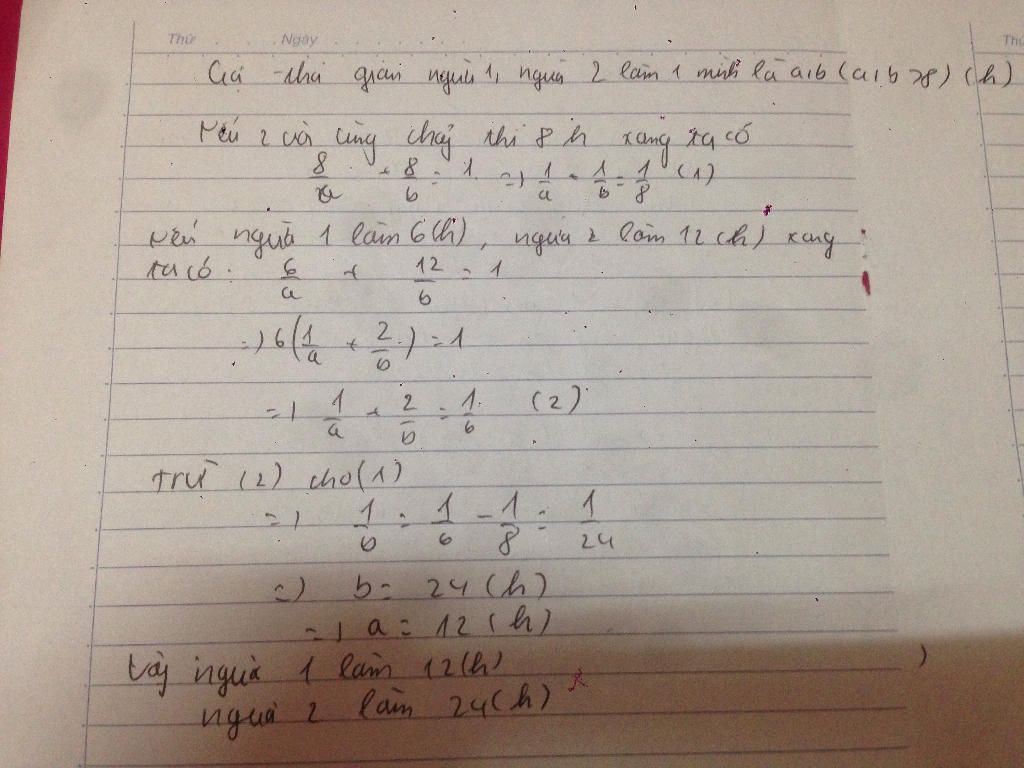 Thứ . . . . . Ngày . . . . . . . .
Gọi thời gian người 1, người 2 làm 1 mình là a,b (a,b >8) (h)
Nếu 2 vòi cùng chảy thì 8 h xong ta có
8/a + 8/b = 1 => 1/a + 1/b = 1/8 (1)
Nếu người 1 làm 6(h), người 2 làm 12(h) xong
ta có: 6/a + 12/b = 1
=> 6(1/a + 2/b) = 1
=> 1/a + 2/b = 1/6 (2)
Trừ (2) cho (1)
=> 1/b = 1/6 - 1/8 = 1/24
=> b = 24 (h)
=> a = 12 (h)
Vậy người 1 làm 12(h)
người 2 làm 24(h)